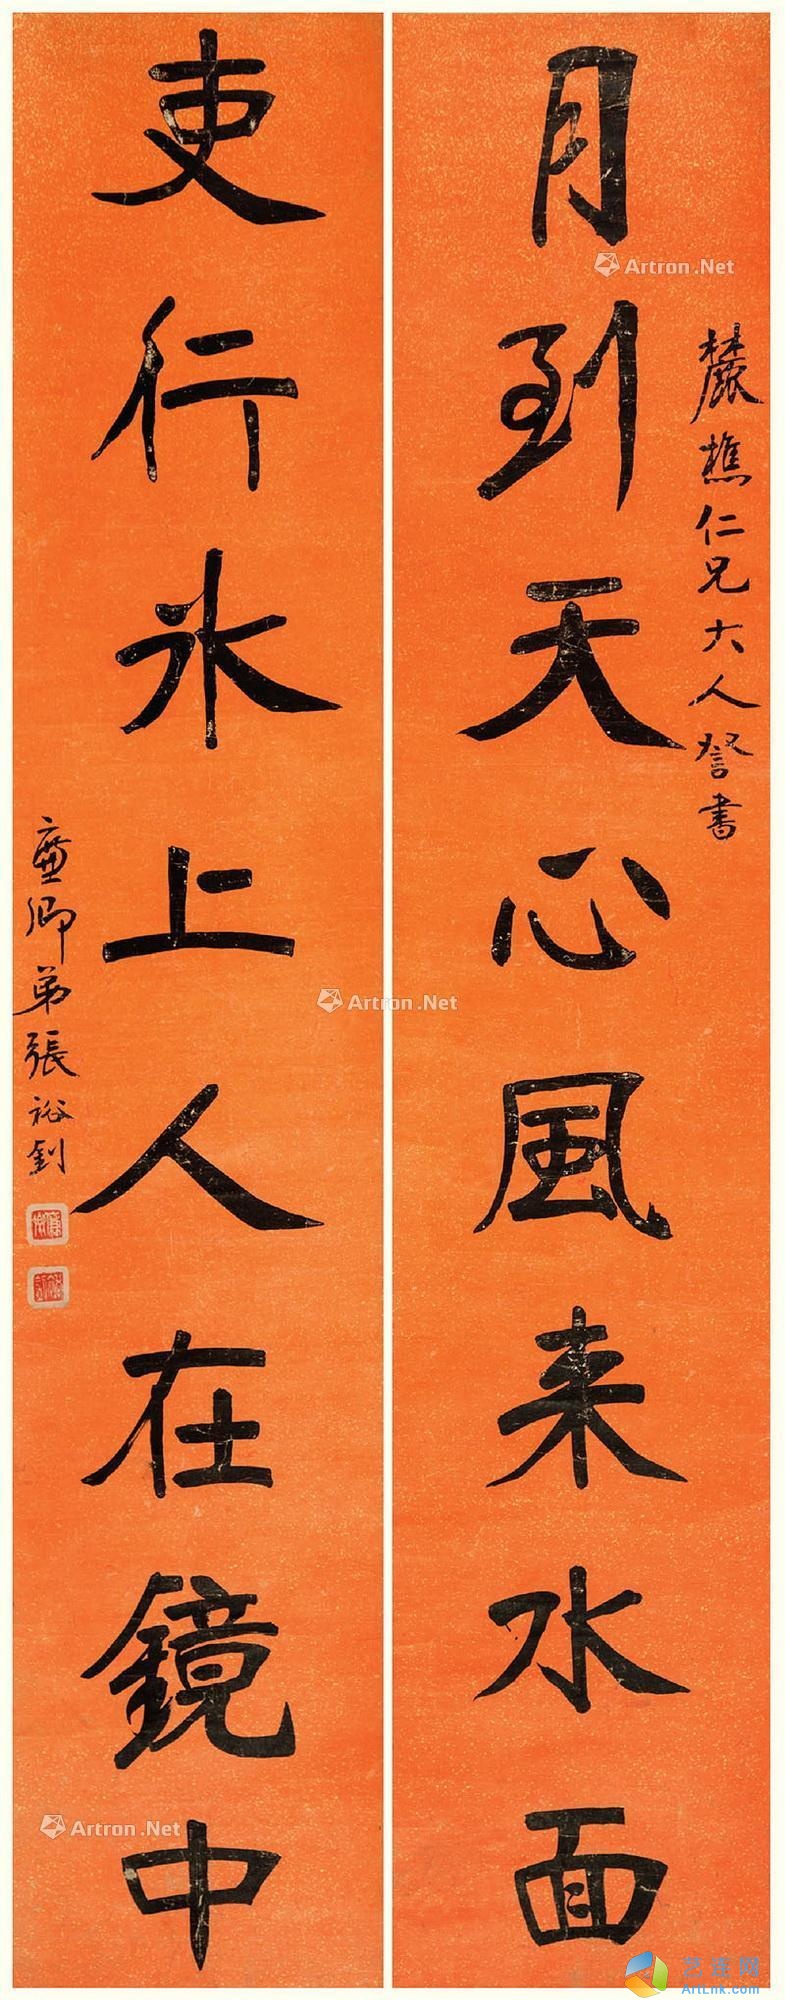 麓樵仁兄大人詧書
月到天心風来水面
吏行氷上人在鏡中
廉卿弟張裕釗
Artron.Net
Artron.Net
Artron.Net
艺连网
ArtLink.com